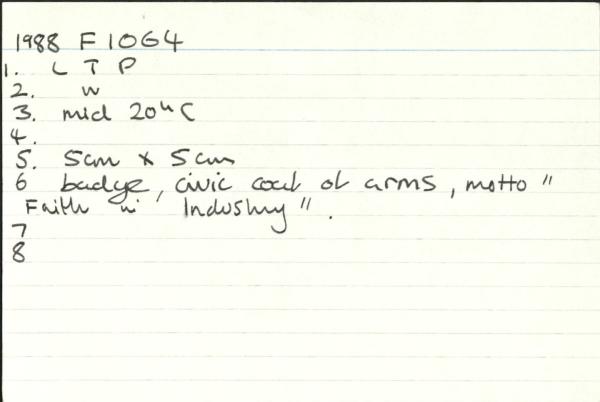 1988 F1064
1. L T P
2. W
3. mid 20th C
4.
5. 5cm x 5cm
6 badge, civic coat of arms, motto "
Faith in Industry".
7
8